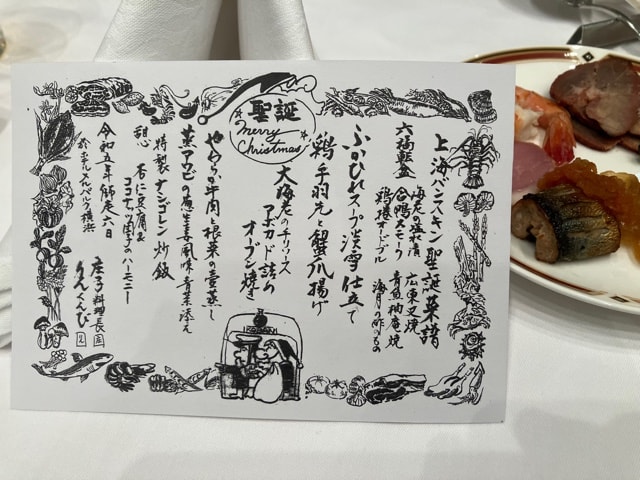 聖誕
Merry
Christmas
上海パンスキン聖誕菜譜
六福転盆
海老の盛れ漬
合鴨スモーク
鶏捲オードブル
広東叉焼
青魚柚庵焼
海月の酢のもの
ふかひれスープ淡雪仕立て
鶏手羽先と蟹爪揚げ
大海老のチリソース
アボカド詰め
オーブン焼き
やわらか牛肉と根菜の壺蒸し
蒸アワビの葱生姜風味青菜添え
特製ナシゴレン炒飯
憩
杏仁豆腐&
ココナッツ団子のハーモニー
令和五年師走六日
於ホテルメルパルク横浜
庄子料理長
りんくんび